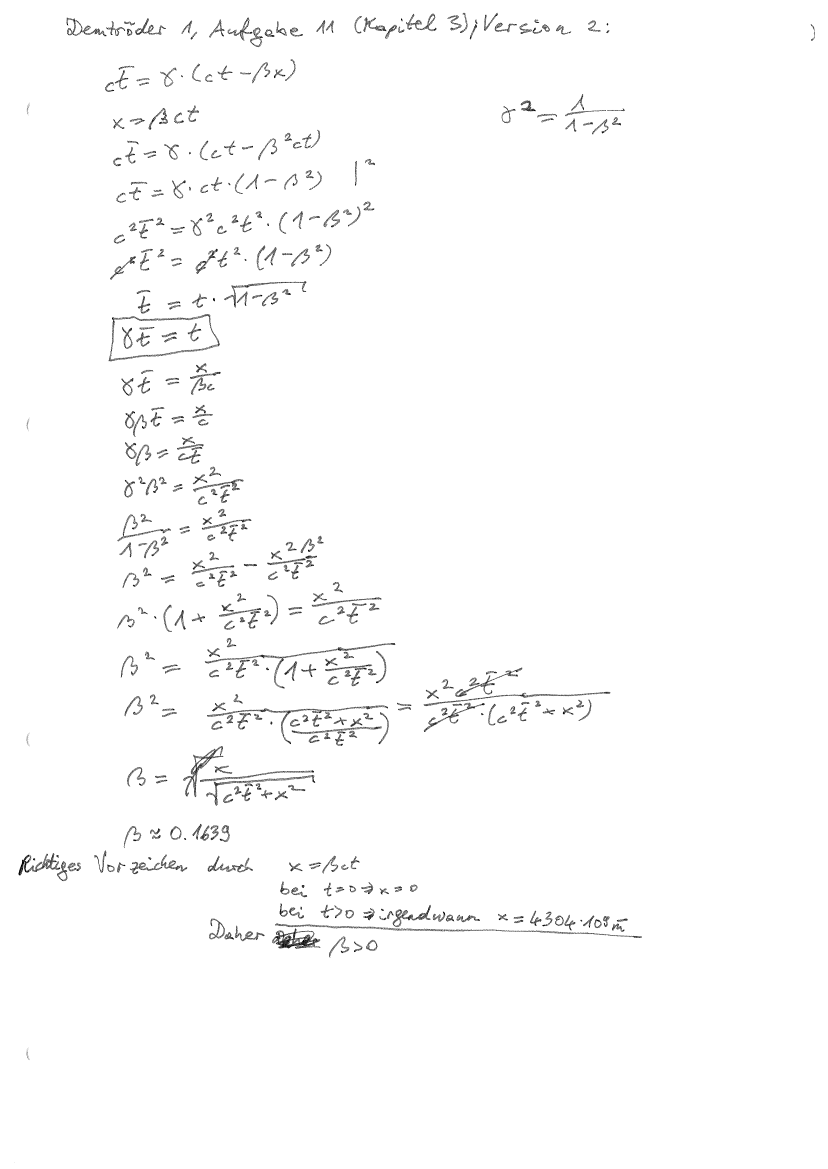 Demtröder 1, Aufgabe 11 (Kapitel 3), Version 2:
ct̅ = γ·(ct − βx)
x = βct
γ² = 1/(1−β²)
ct̅ = γ·(ct − β²ct)
ct̅ = γ·ct·(1−β²) |²
c²t̅² = γ²c²t²·(1−β²)²
c²t̅² = c²t²·(1−β²)
t̅ = t·√(1−β²)
γt̅ = t
γt̅ = x/(βc)
γβt̅ = x/c
γβ = x/(ct̅)
γ²β² = x²/(c²t̅²)
β²/(1−β²) = x²/(c²t̅²)
β² = x²/(c²t̅²) − x²β²/(c²t̅²)
β²·(1 + x²/(c²t̅²)) = x²/(c²t̅²)
β² = x²/(c²t̅²·(1 + x²/(c²t̅²)))
β² = x²/(c²t̅²·((c²t̅²+x²)/(c²t̅²))) = x²c²t̅²/(c²t̅²·(c²t̅²+x²))
β = x/√(c²t̅²+x²)
β ≈ 0.1639
Richtiges Vorzeichen durch x = βct
bei t=0 ⇒ x=0
bei t>0 ⇒ irgendwann x = 4304·10⁹ m
Daher β>0